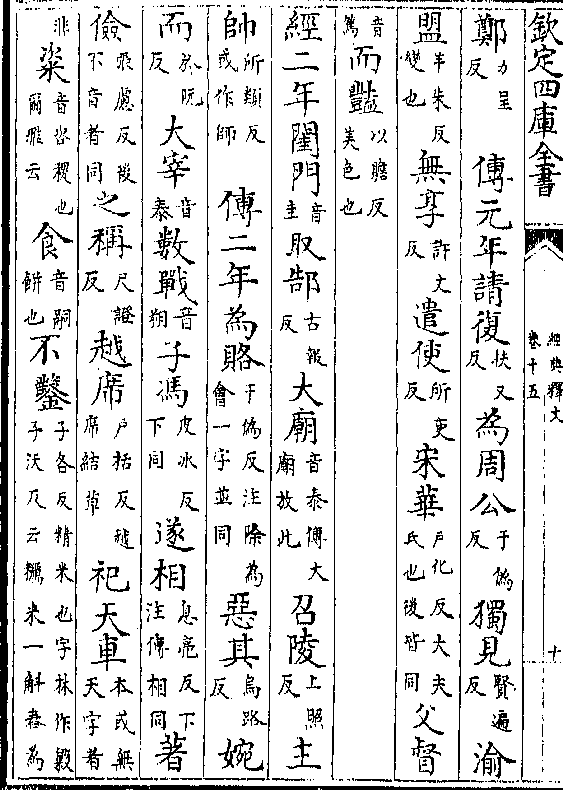 欽定四庫全書 經典釋文卷十五 十
鄭力呈反 傳元年請復扶又反為周公于偽反獨見賢遍反渝
盟羊朱反變也無享許丈反遣使所吏反宋華戶化反大夫氏也後皆同父督
音篤而豔以贍反美色也
經二年閨門音圭取郜古報反大廟音泰傳大廟放此召陵上照反主
帥所類反或作師 傳二年為賂于偽反注除為會一字並同惡其烏路反婉
而於阮反大宰音泰數戰音朔子馮皮冰反下同遂相息亮反下注傳相同著
儉張慮反後不音者同之稱尺證反越席戶括反越席結草祀天車本或無天字者
非粢音咨稷也爾雅云食音嗣餅也不鑿子各反精米也字林作毇子沃反云糲米一斛舂為